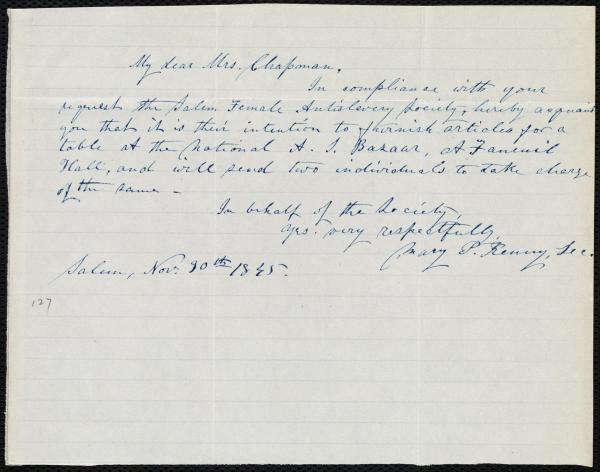 My dear Mrs. Chapman,
In compliance with your
request the Salem Female Antislavery Society, hereby acquaint
you that it is their intention to furnish articles for a
table at the National A. S. Bazaar, at Faneuil
Hall, and will send two individuals to take charge
of the same –
In behalf of the Society,
Yrs. very respectfully,
Mary P. Kenny, Sec.
Salem, Nov. 30th 1845.
127